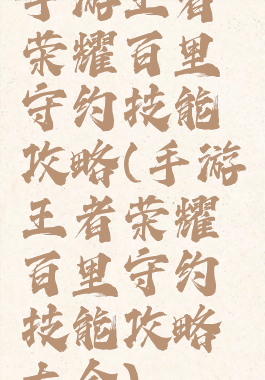 手游王者
荣耀百里
守约技能
攻略(手游
王者荣耀
百里守约
技能攻略
大全)